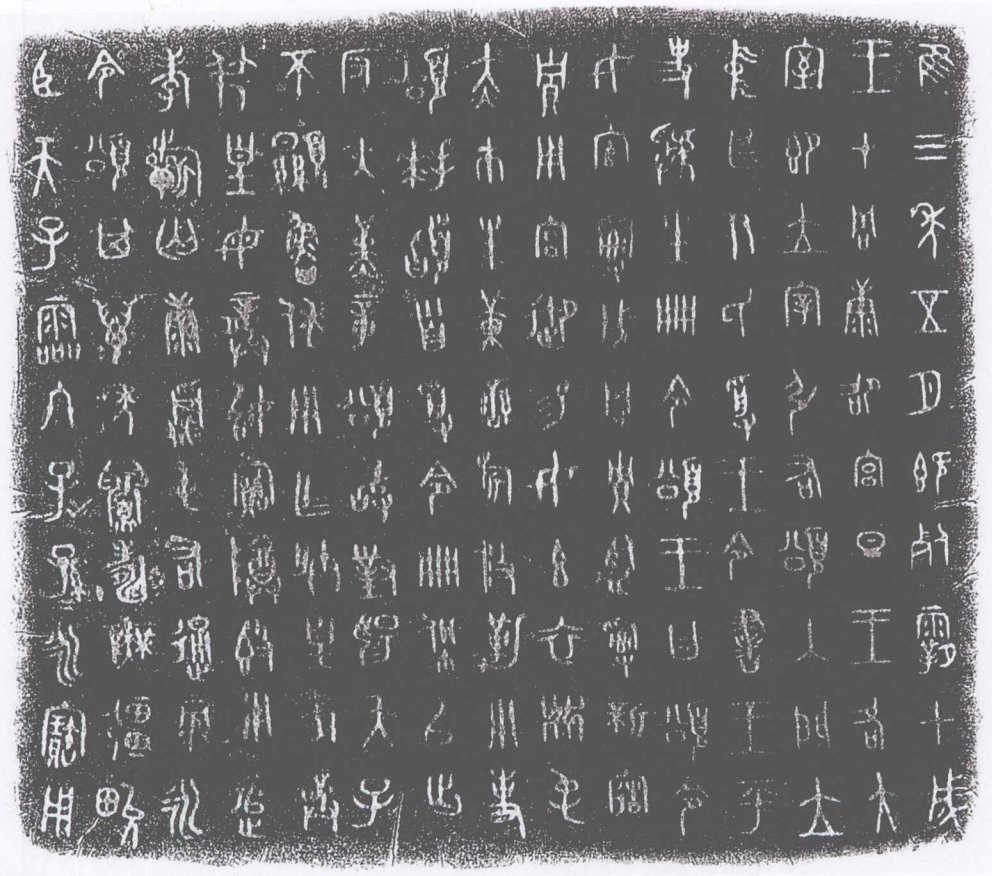 隹三年五月既死霸甲戌
王才周康卲宮旦王各大
室即立宰引右頌入門立
中廷尹氏受王令書王乎
史虢生冊令頌王曰頌令
女官𤔲成周貯監𤔲新造
貯用宮御易女玄衣黹屯
赤市朱黃䜌旂攸勒用事
頌拜𩒨首受令冊佩㠯出
反入堇章頌敢對揚天子
不顯魯休用乍朕皇考龏
弔皇母龏始寶尊鼎用追
孝𣄨匄康𩁹屯右通彔永
令頌其萬年眉壽無彊畯
臣天子霝冬子=孫=永寶用